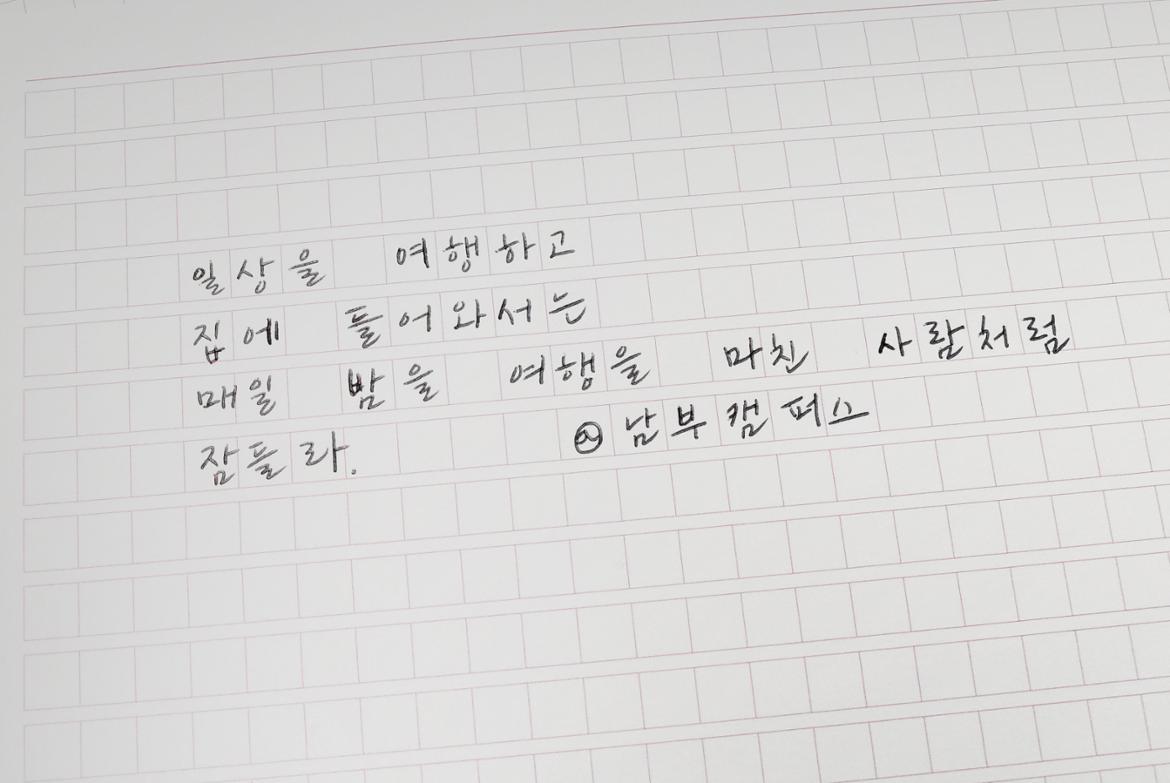 일상을 여행하고
집에 들어와서는
매일 밤을 여행을 마친 사람처럼
잠들라.
남부캠퍼스